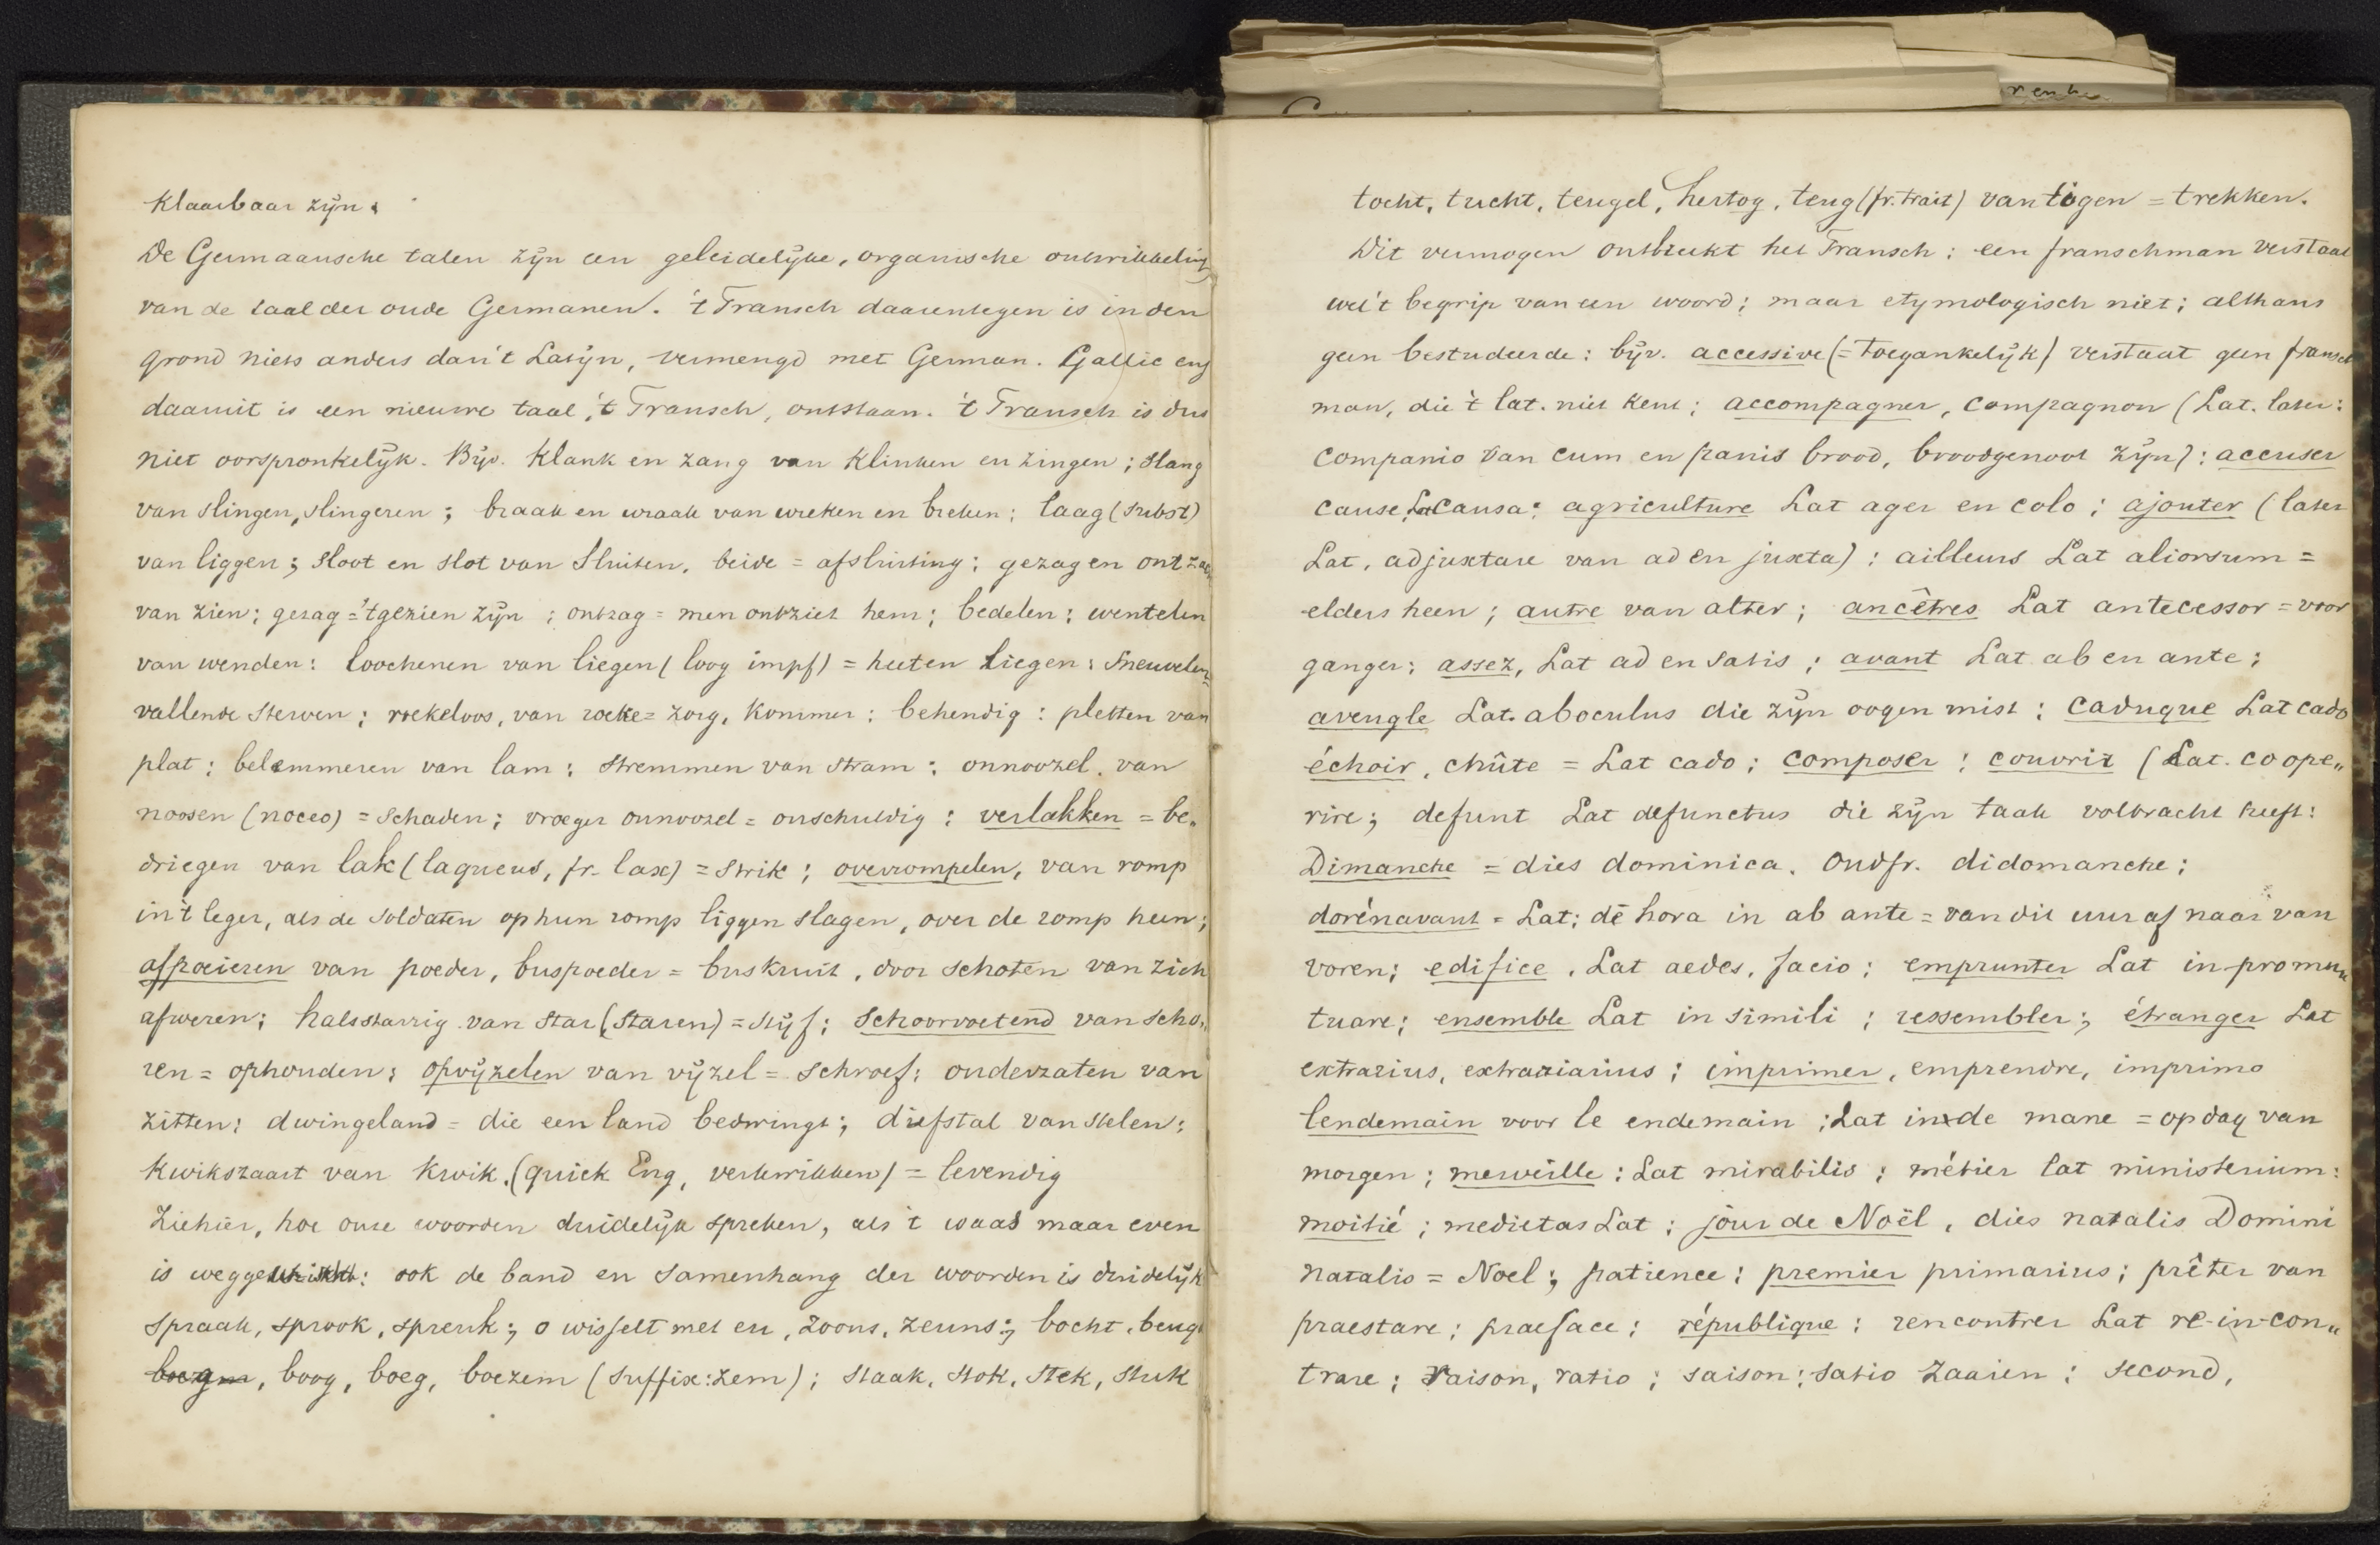 klaarbaar zijn.
De Germaansche talen zijn een geleidelijke, organische ontwikkeling
van de taal der oude Germanen. 't Fransch daarentegen is in den
grond niets anders dan 't Latijn, vermengd met German. Gallic enz
daaruit is een nieuwe taal, 't Fransch, ontstaan. 't Fransch is dus
niet oorspronkelijk. Bijv. Klank en zang van klinken en zingen; slang
van slingen, slingeren; braak en wraak van wreken en breken; laag (subst)
van liggen; sloot en slot van sluiten, beide = afsluiting; gezag en ontzag
van zien; gezag = 't gezien zijn; ontzag = men ontziet hem; bedelen; wentelen
van wenden: loochenen van liegen (loog impf) = heeten liegen; sneuvelen =
vallende sterven; roekeloos, van roeke = zorg, kommer; behendig: pletten van
plat; belemmeren van lam; stremmen van stram; onnoozel. van
noosen (noceo) = schaden; vroeger onnoozel = onschuldig; verlakken = be„
driegen van lak (laqueus, fr. lax) = strik; overrompelen, van romp
in 't leger, als de soldaten op hun romp liggen slagen, over de romp heen;
afpoeieren van poeder, buspoeder = buskruit, door schoten van zich
afweren; halsstarrig van star (staren) = stijf; schoorvoetend van scho„
ren = ophouden; opvijzelen van vijzel = schroef; onderzaten van
zitten; dwingeland = die een land bedwingt; diefstal van stelen;
kwikstaart van kwik. (quick Eng, verkwikken) = levendig
Ziehier, hoe onze woorden duidelijk spreken, als 't waas maar even
is wegge: ook de band en samenhang der woorden is duidelijk
spraak, sprook, spreuk; o wisselt met eu, zoons, zeuns; bocht, beugt
boog, boeg, boezem (suffix: zem); staak, stok, stek, stuk
tocht, tucht, teugel, hertog, teug (fr. trait) van tiogen = trekken.
Dit vermogen ontbreekt het Fransch: een franschman verstaat
wel 't begrip van een woord; maar etymologisch niet; althans
geen bestudeerde: bijv. accessive (= toegankelijk) verstaat geen fransch
man, die 't lat. niet kent; accompagner, compagnon (Lat. later:
companio van cum en panis brood, broodgenoot zijn): accuser
cause, Lat causa; agriculture Lat ager en colo; ajouter (later
Lat, adjuxtare van ad en juxta): ailleurs Lat aliorsum =
elders heen; autre van alter; ancêtres Lat antecessor = voor
ganger; assez, Lat ad en satis; avant Lat ab en ante;
aveugle Lat. aboculus die zijn oogen mist; caduque Lat cado
échoir, chûte = Lat cado; composer; couvrir (Lat. coope„
rire; defunt Lat defunctus die zijn taak volbracht heeft:
Dimanche = dies dominica. Oudfr. didomanche;
dorénavant = Lat; dē hora in ab ante = van dit uur af naar van
voren; edifice, Lat aedes, facio; emprunter Lat in-promu„
tuare; ensemble Lat in simili; ressembler; étranger Lat
extrarius, extrariarius; imprimer, emprendre, imprimo
lendemain voor le endemain; Lat in de mane = op dag van
morgen; merveille: Lat mirabilis; métier lat ministerium:
moitié; medietas Lat; jour de Noël, dies natalis Domini
natalis = Noel; patience; premier primarius; prêter van
praestare; praeface; république; rencontrer Lat re-in-con„
trare; raison, ratio; saison: satio zaaien; second,